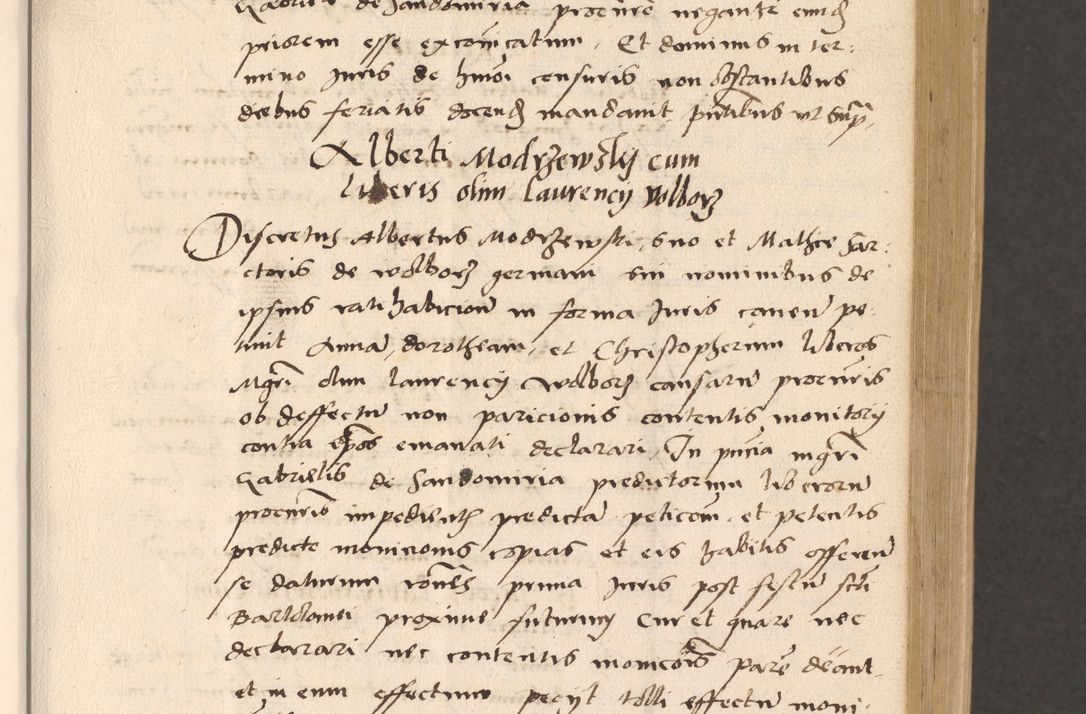 Gabriele de Sandomiria procure negante eund
priorem esse excoicatum. Et dominus in ter:
mino Juris de hmoi censuris non obstantibus
diebus feriatis docend mandavit pntibus ut sup.
Alberti Modrzewsky cum
liberis olim Laurency Wolborz
Discretus Albertus Modrzewski, suo et Mathie Sar:
ctoris de Wolborz germani sui nominibus de
ipsius ratihabicione in forma Juris caven pe:
tiit Anna, dorotheam, et Christopherum liberos
Mgri olim Laurency Wolborz causarum procuris
ob deffectu non paricionis contentis monitory
contra ipsos emanati declarari. In pncia mgri
Gabrielis de Sandomiria predictorum liberorum
procuris impedient predicta peticom. et petentis
predicte monicionis copias et eis habitis offeren
se daturum prima Juris post festu scti
Bartolomei proxime futurum Cur et quare nec
declarari nec contentis monicois parere debeant.
et in eum effectum pecyt tolli effectu moni: